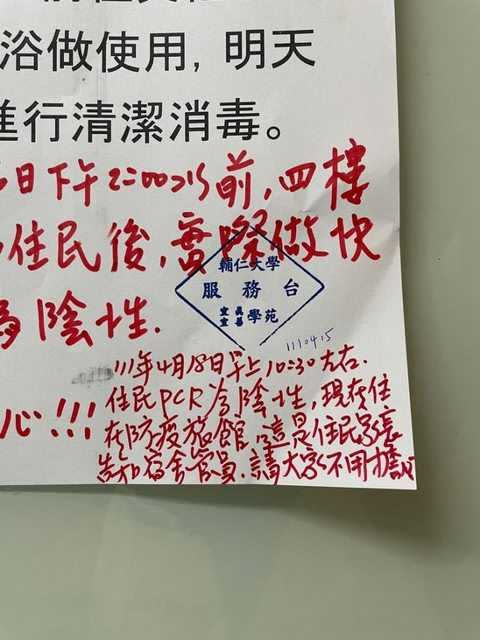 浴做使用，明天
進行清潔消毒。
日下午2:00>15前，四樓
住民後，實際做快
為陰性.
輔仁大學
服務台
宜真
宜善
學苑
1110415
心!!!
111年4月18日早上10:30左右.
住民PCR為陰性，現在住
在防疫旅館，這是住民家長
告知宿舍管員.請大家不用擔心